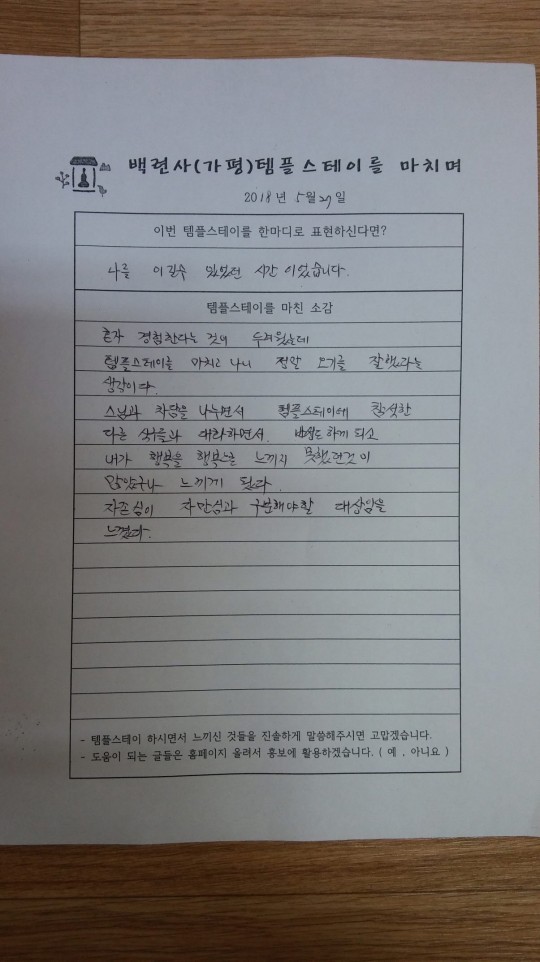 백련사(가평)템플스테이를 마치며
2018년 5월 27일
이번 템플스테이를 한마디로 표현하신다면?
나를 이길수 있었던 시간이었습니다.
템플스테이를 마친 소감
혼자 경험한다는 것이 두려웠는데
템플스테이를 마치고 나니 정말 오기를 잘했다는
생각이다.
스님과 차담을 나누면서 템플스테이에 참석한
다른 분들과 대화하면서. 하게 되고
내가 행복을 행복으로 느끼지 못했던것이
많았구나 느끼게 됐다.
자존심이 자만심과 구분해야할 대상임을
느꼈다.
- 템플스테이 하시면서 느끼신 것들을 진솔하게 말씀해주시면 고맙겠습니다.
- 도움이 되는 글들은 홈페이지 올려서 홍보에 활용하겠습니다. ( 예 , 아니요 )